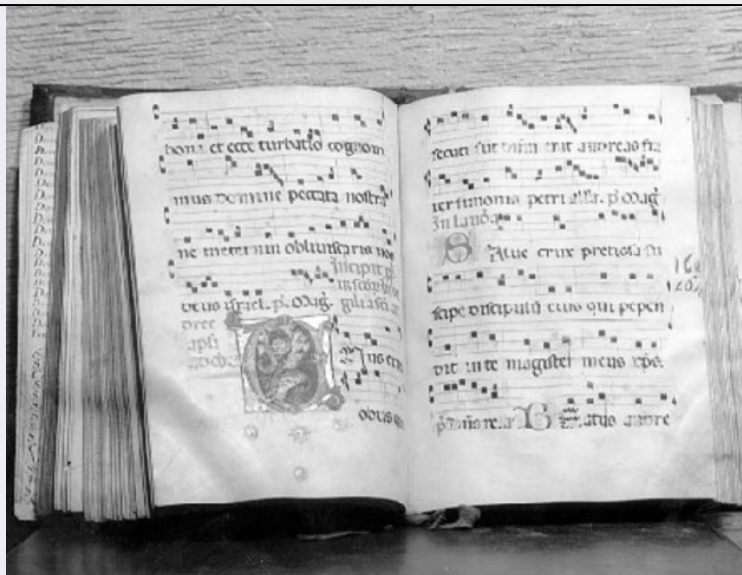 bona et ecce turbatio cognoui
mus domine peccata nostra
ne ineternum obliuiscaris nos
Incipit
deus israel. p. Mag.
dree
apli
nus ex
obus
secuti sunt dñm erat andreas fra
ter simonis petri alla. p. Mag.
In laud
Salue crux pretiosa su
scipe discipulũ eius qui pepen
dit in te magister meus xps.
B eatus andre